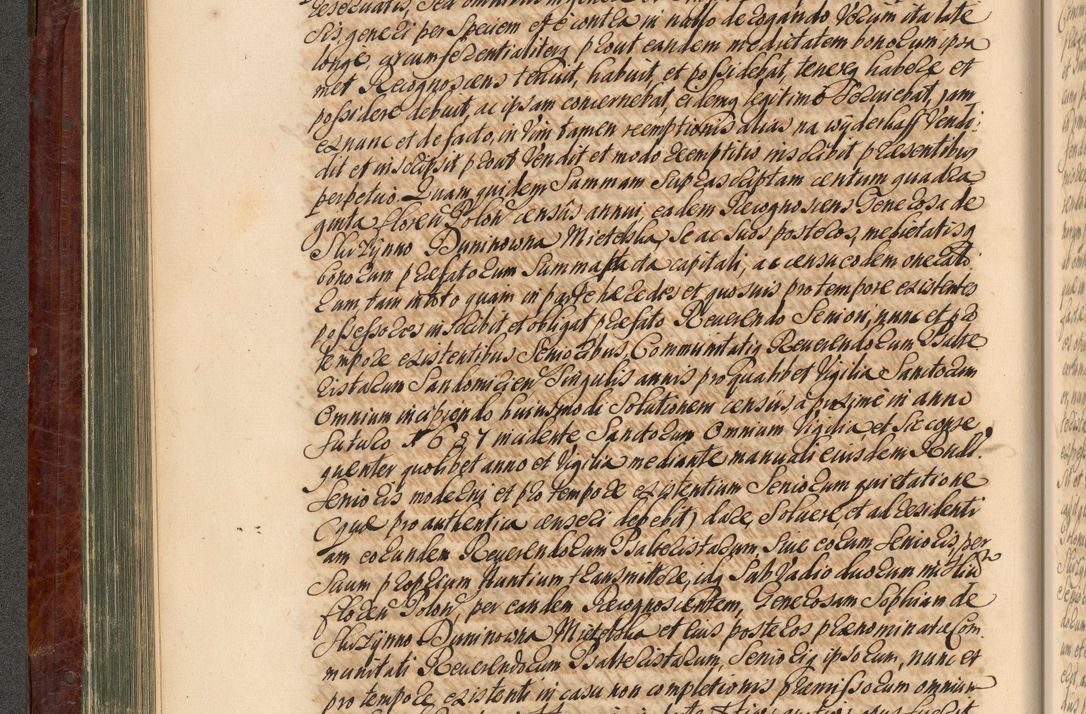 sis generi per speciem et è contra in nullo derogando Verum ita late
longe circumferentialiterq prout eandem medietatem bonorum ipsa
met Recognoscens tenuit, habuit, et possidebat, tenereq habere et
possidere debuit, ac ipsam concernebat, eidemq legitimè serviebat, jam
exnunc et de facto, in Vim tamen reemptionis alias na wyderkaff Vendi
dit et inscripsit prout Vendit et modo reemptitio inscribit præsentibus
perpetuo. Quam quidem Summam suprascriptam centum quadra
ginta floren Polon censûs annui, eadem Recognoscens Generosa de
Sluzynno Duninowna Mietelska, se ac suos posteros, medietatisq
bonorum præfatorum Summa facta capitali, ac censu eodem onerato
rum, tam in toto quam in parte hæredes et quosvis pro tempore existentes
possessores inscribit et obligat præfato Reuerendo Seniori, nunc et pro
tempore existentibus Senioribus, Communitatiq Reuerendorum Psalte
ristarum Sandomirien Singulis annis pro qualibet Vigilia Sanctorum
Omnium incipiendo huiusmodi Solutionem censûs a proxime in anno
futuro 1687 incidente Sanctorum Omnium Vigilia et sic conse
quenter quolibet anno et Vigilia mediante manuali eiusdem Rndi
Senioris moderni et pro tempore existentium Seniorum quietatione
(quæ pro authentica censeri debebit) dare, Soluere, et ad residenti
am eorundem Reuerendorum Psalteristarum, siue eorum Senioris, per
suum proprium nuntium transmittere, idq Sub Vadio duorum millium
floren Polon, per eandem Recognoscentem, Generosam Sophiam de
Sluzynno Duninowna Mietelska et eius posteros prænominatæ Com
munitati Reuerendorum Psalteristarum, Senioriq ipsorum, nunc et
pro tempore existenti in casu non completionis præmissorum omnium